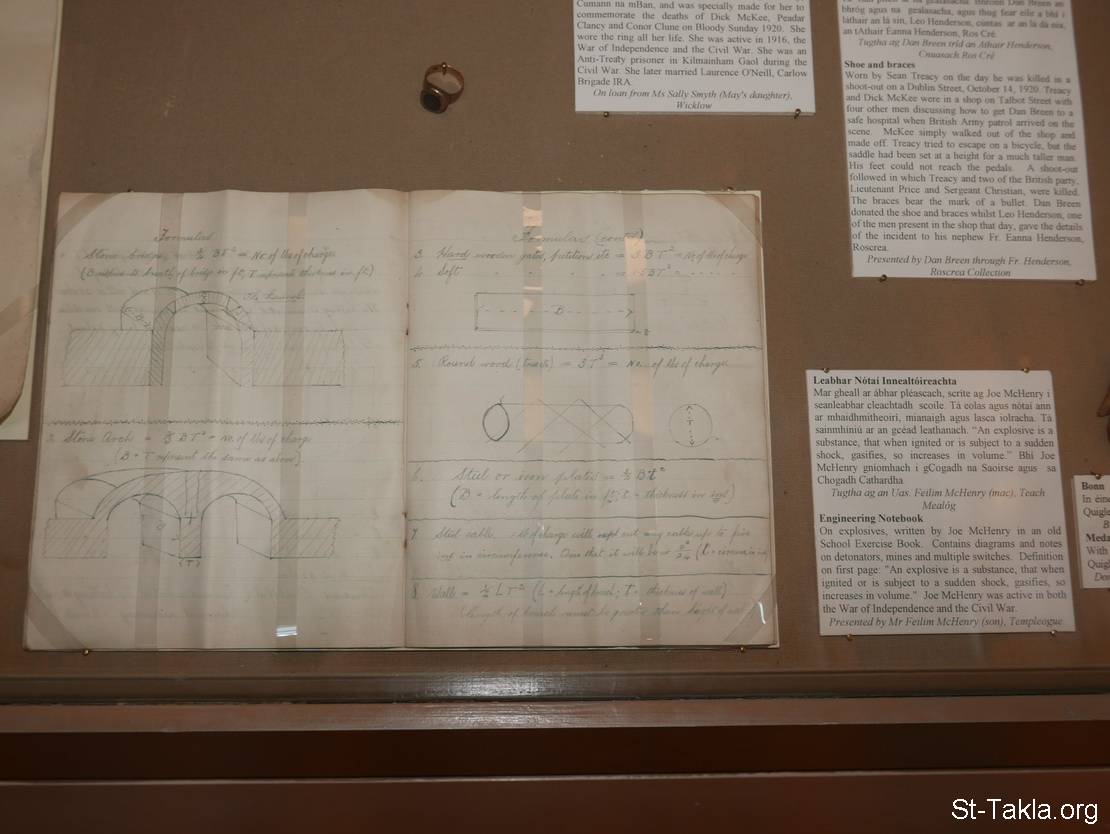 Cumann na mBan, and was specially made for her to
commemorate the deaths of Dick McKee, Peadar
Clancy and Conor Clune on Bloody Sunday 1920. She
wore the ring all her life. She was active in 1916, the
War of Independence and the Civil War. She was an
Anti-Treaty prisoner in Kilmainham Gaol during the
Civil War. She later married Laurence O'Neill, Carlow
Brigade IRA.
On loan from Ms Sally Smyth (May's daughter),
Wicklow
bhróg agus na gealasacha, agus thug fear eile a bhí i
láthair an lá sin, Leo Henderson, cuntas ar an lá dá nia,
an tAthair Eanna Henderson, Ros Cré.
Tugtha ag Dan Breen tríd an Athair Henderson,
Cnuasach Ros Cré
Shoe and braces
Worn by Sean Treacy on the day he was killed in a
shoot-out on a Dublin Street, October 14, 1920. Treacy
and Dick McKee were in a shop on Talbot Street with
four other men discussing how to get Dan Breen to a
safe hospital when British Army patrol arrived on the
scene. McKee simply walked out of the shop and
made off. Treacy tried to escape on a bicycle, but the
saddle had been set at a height for a much taller man.
His feet could not reach the pedals. A shoot-out
followed in which Treacy and two of the British party,
Lieutenant Price and Sergeant Christian, were killed.
The braces bear the mark of a bullet. Dan Breen
donated the shoe and braces whilst Leo Henderson, one
of the men present in the shop that day, gave the details
of the incident to his nephew Fr. Eanna Henderson,
Roscrea.
Presented by Dan Breen through Fr. Henderson,
Roscrea Collection
Formulas
Stone bridge = BT² = No. of lbs of charge
(B = breadth of bridge in ft, T represents thickness in ft)
The Haunch
2. Stone Arch = BT² = No. of lbs of charge
(B + T represent the same as above)
(T)
Formulas (contd)
3. Hard wooden gates, partitions etc = 3BT² = No of lbs of charge
4. Soft
B
5. Round wood (trees) = 3T² = No. of lbs of charge
T
6. Steel or iron plates = ½ Bt²
(B = length of plate in ft; t = thickness in ins)
7. Steel cable. of charge will cut any cable up to five
ins in circumference. Over that, it will be
8. Walls = ½ LT² (L = length of breach; T = thickness of wall)
(length of breach must be greater than
Leabhar Nótaí Innealtóireachta
Mar gheall ar ábhar pléascach, scríte ag Joe McHenry i
seanleabhar cleachtadh scoile. Tá eolas agus nótaí ann
ar mhaidhmitheoirí, mianaigh agus lasca iolracha. Tá
sainmhíniú ar an gcéad leathanach. "An explosive is a
substance, that when ignited or is subject to a sudden
shock, gasifies, so increases in volume." Bhí Joe
McHenry gníomhach i gCogadh na Saoirse agus sa
Chogadh Cathardha.
Tugtha ag an Uas. Feilim McHenry (mac), Teach
Mealóg
Engineering Notebook
On explosives, written by Joe McHenry in an old
School Exercise Book. Contains diagrams and notes
on detonators, mines and multiple switches. Definition
on first page: "An explosive is a substance, that when
ignited or is subject to a sudden shock, gasifies, so
increases in volume." Joe McHenry was active in both
the War of Independence and the Civil War.
Presented by Mr Feilim McHenry (son), Templeogue
Bonn
In éine
Quigle
Meda
With
Quigl
St-Takla.org